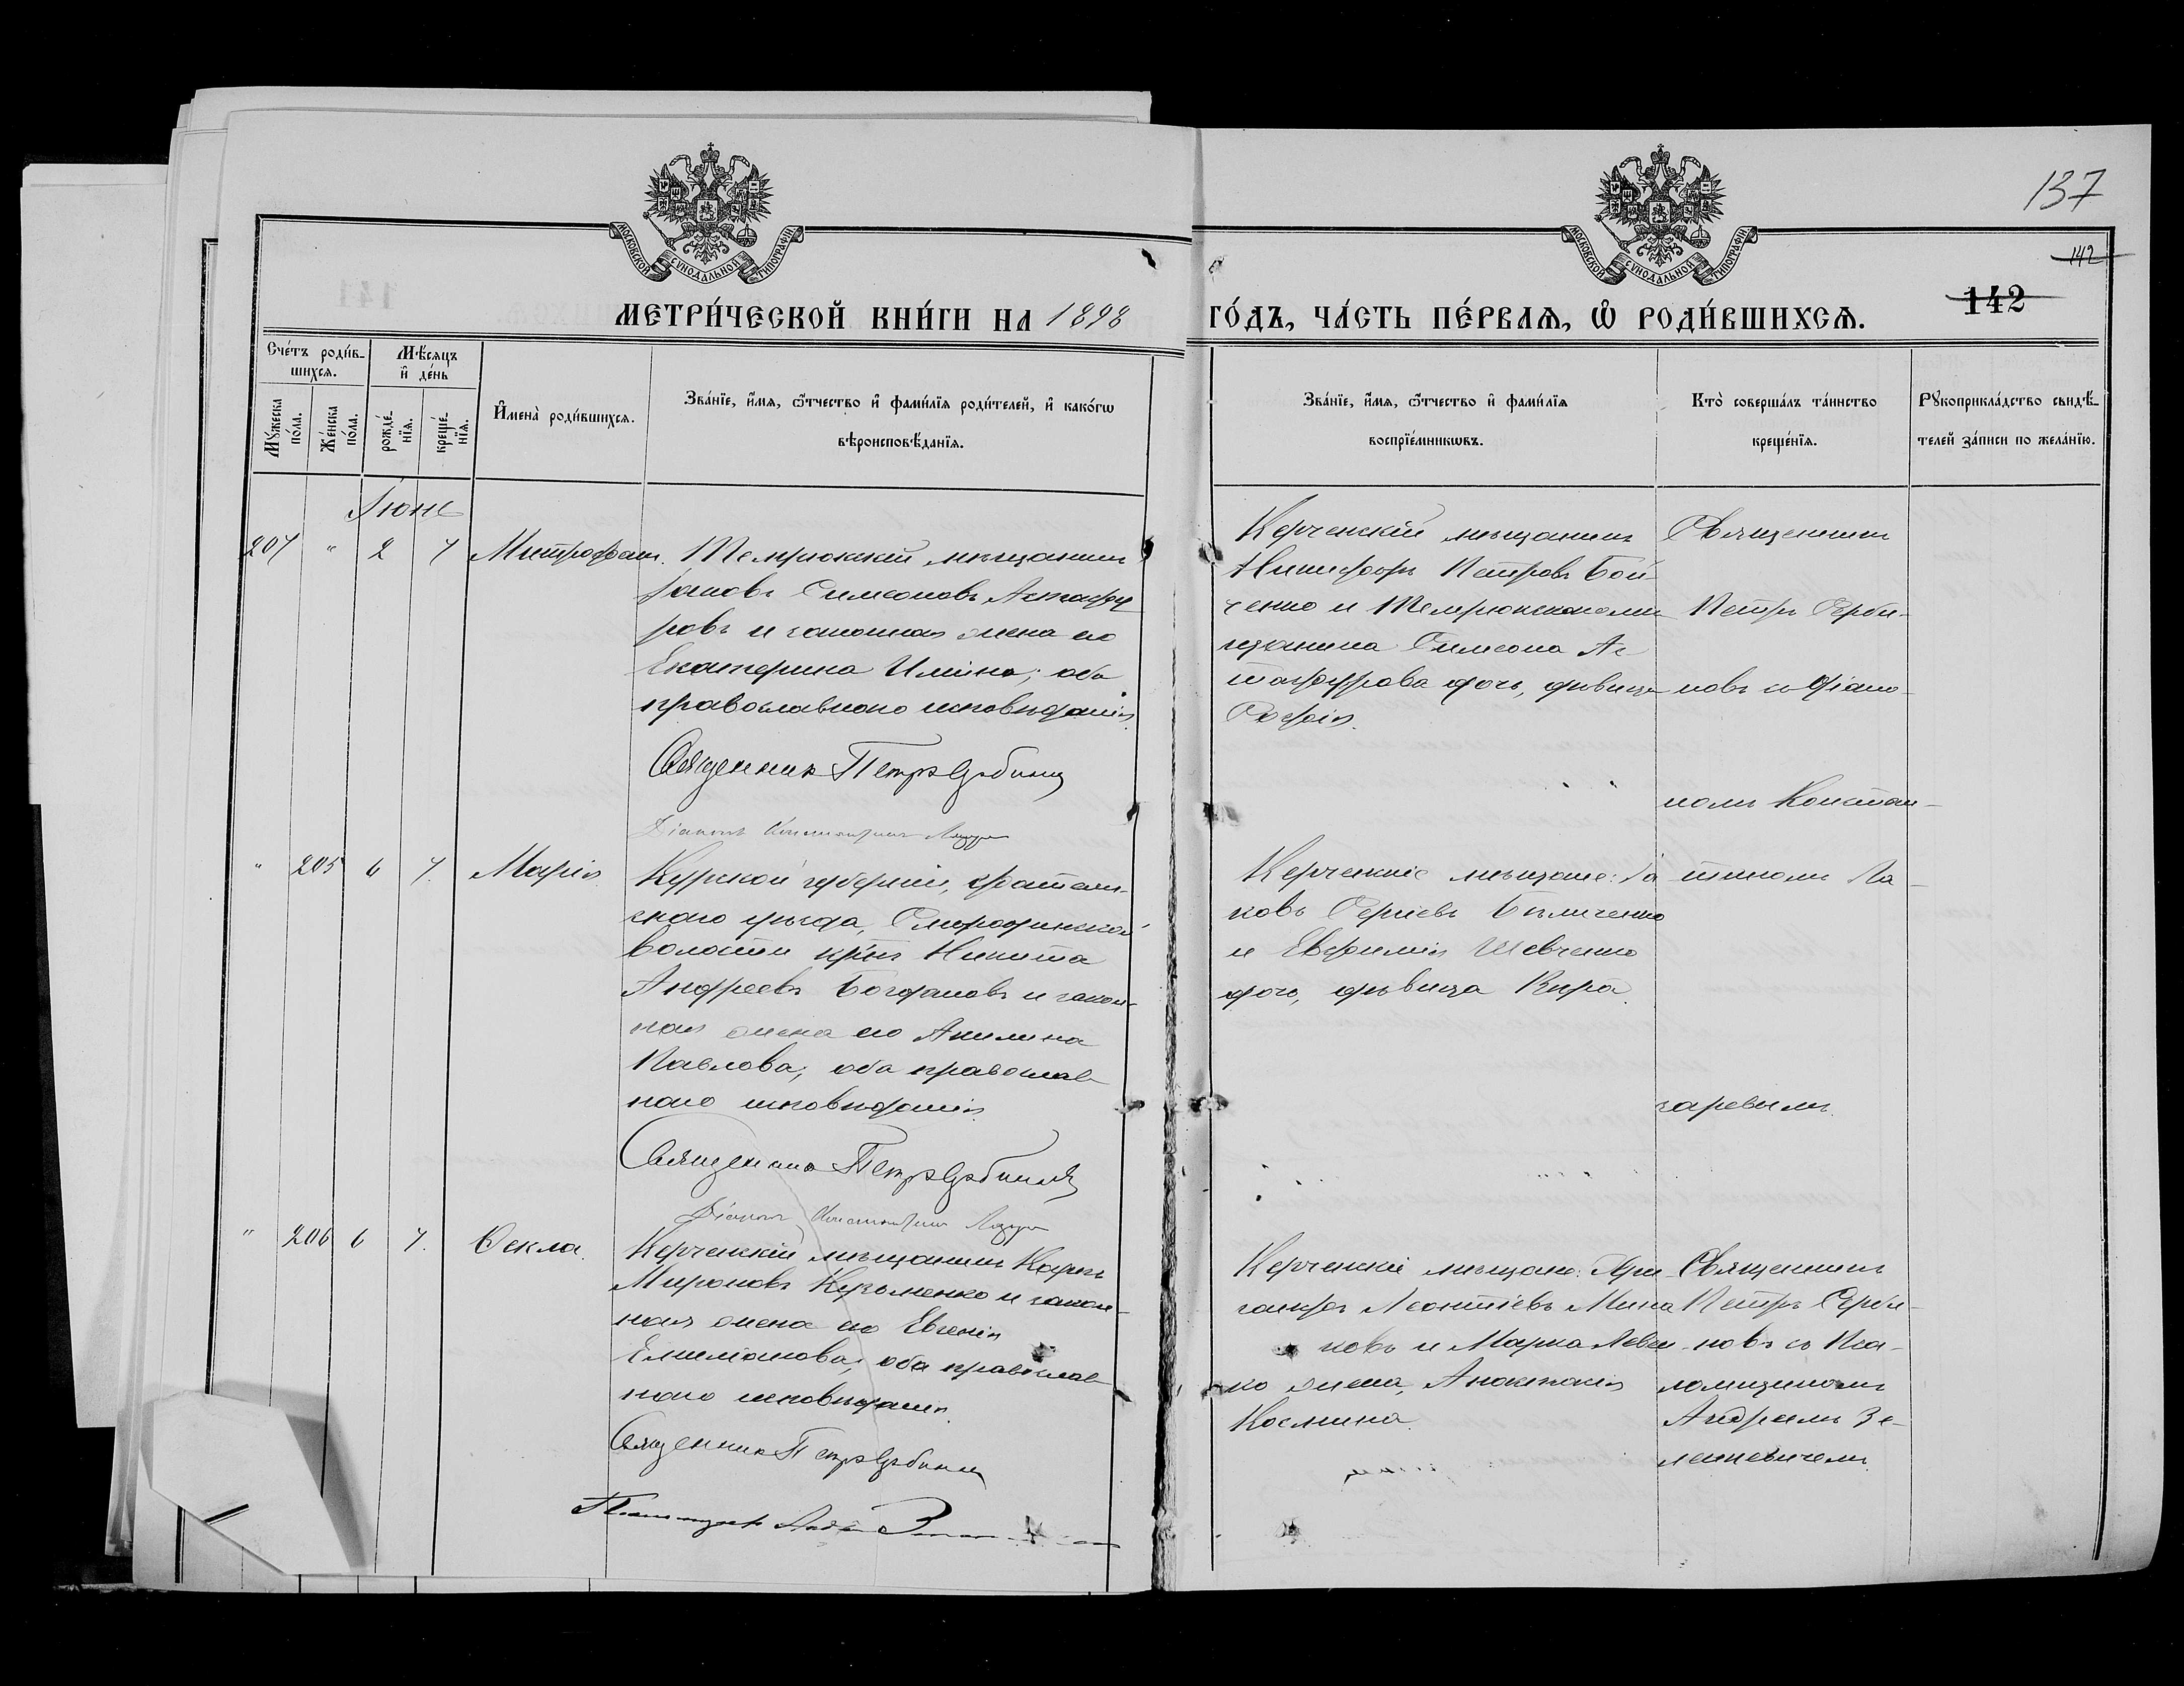 137
142
142
МОСКОВСКОЙ СѴНОДАЛЬНОЙ ТИПОГРАФІИ
МОСКОВСКОЙ СѴНОДАЛЬНОЙ ТИПОГРАФІИ
МЕТРИ́ЧЕСКОЙ КНИ́ГИ НА 1898 ГО́ДЪ, ЧА́СТЬ ПЕ́РВАѦ, Ѡ РОДИ́ВШИХСѦ.
Сче́тъ роди́в-
шихсѧ.
Мѣ́сяцъ
и҆ де́нь
Мꙋ́жеска
по́ла.
Же́нска
по́ла.
рожде́-
нїѧ.
креще́-
нїѧ.
И҆мена̀ роди́вшихсѧ.
Зва́нїе, и҆́мѧ, ѻ҆́тчество и҆ фами́лїѧ роди́телей, и҆ како́гѡ
вѣроисповѣ́данїѧ.
Зва́нїе, и҆́мѧ, ѻ҆́тчество и҆ фами́лїѧ
воспрїе́мникѡвъ.
Кто̀ соверша́лъ та́инство
креще́нїѧ.
Рꙋкоприкла́дство свидѣ́-
телей за́писи по жела́нїю.
Іюнь
207 " 2 7 Митрофанъ.
Темрюкскій мѣщанинъ
Іаковъ Симеоновъ Астафу
ровъ и законная жена его
Екатерина Ильина; оба
православнаго исповѣданія.
Священникъ Петръ Сербиновъ
Діаконъ Константинъ Лазарев
Керченскій мѣщанинъ
Никифоръ Петровъ Бой-
ченко и Темрюкскаго мѣ-
щанина Симеона Ас-
тафурова дочь, дѣвица
Софія.
Священникъ
Петръ Серби-
новъ съ Діако-
номъ Констан-
тиномъ Ла-
заревымъ.
" 205 6 7. Марія
Курской губерніи, Фатеж-
скаго уѣзда,
волости кр-нъ Никита
Андреевъ Богдановъ и закон-
ная жена его Акилина
Павлова; оба православ
наго исповѣданія.
Священникъ Петръ Сербиновъ
Діаконъ Константинъ Лазарев
Керченскіе мѣщане: Іа
ковъ Сергіевъ Бѣличенко
и Евфимія Шевченко
дочь, дѣвица Кира.
" 206 6 7. Ѳекла.
Керченскій мѣщанинъ Карпъ
Мироновъ Кузьменко и закон-
ная жена его Евгенія
Емиліанова; оба православ
наго исповѣданія.
Священникъ Петръ Сербиновъ
Псаломщикъ Андрей
Керченскіе мѣщане:
Леонтіевъ Мина
ковъ и Марка Левчен-
ко жена, Анастасія
Космина.
Священникъ
Петръ Серби-
новъ съ Пса-
ломщикомъ
Андреемъ Зе-
линевичемъ.